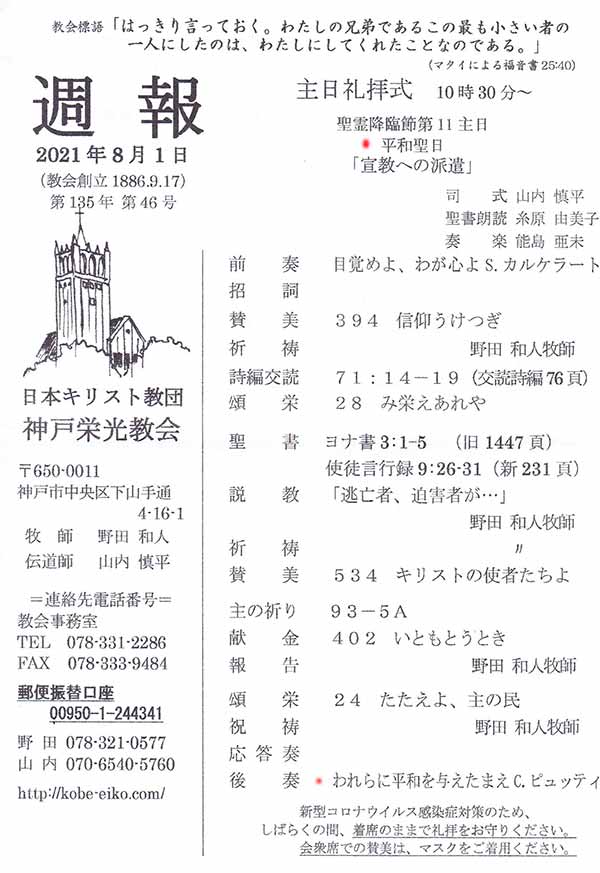 教会標語「はっきり言っておく。わたしの兄弟であるこの最も小さい者の
一人にしたのは、わたしにしてくれたことなのである。」
(マタイによる福音書25:40)
週報
2021年8月1日
(教会創立1886.9.17)
第135年 第46号
日本キリスト教団
神戸栄光教会
〒650-0011
神戸市中央区下山手通
4-16-1
牧師 野田 和人
伝道師 山内 慎平
＝連絡先電話番号＝
教会事務室
TEL 078-331-2286
FAX 078-333-9484
郵便振替口座
00950-1-244341
野田 078-321-0577
山内 070-6540-5760
http://kobe-eiko.com/
主日礼拝式 10時30分～
聖霊降臨節第11主日
平和聖日
「宣教への派遣」
司式 山内 慎平
聖書朗読 糸原 由美子
奏楽 能島 亜未
前奏 目覚めよ、わが心よ S.カルケラート
招詞
賛美 394 信仰うけつぎ
祈祷 野田 和人牧師
詩編交読 71：14－19（交読詩編76頁）
頌栄 28 み栄えあれや
聖書 ヨナ書3:1-5 （旧1447頁）
使徒言行録9:26-31（新231頁）
説教 「逃亡者、迫害者が…」
野田 和人牧師
祈祷 〃
賛美 534 キリストの使者たちよ
主の祈り 93－5A
献金 402 いともとうとき
報告 野田 和人牧師
頌栄 24 たたえよ、主の民
祝祷 野田 和人牧師
応答奏
後奏 われらに平和を与えたまえ C.ピュッティ
新型コロナウイルス感染症対策のため、
しばらくの間、着席のままで礼拝をお守りください。
会衆席での賛美は、マスクをご着用ください。